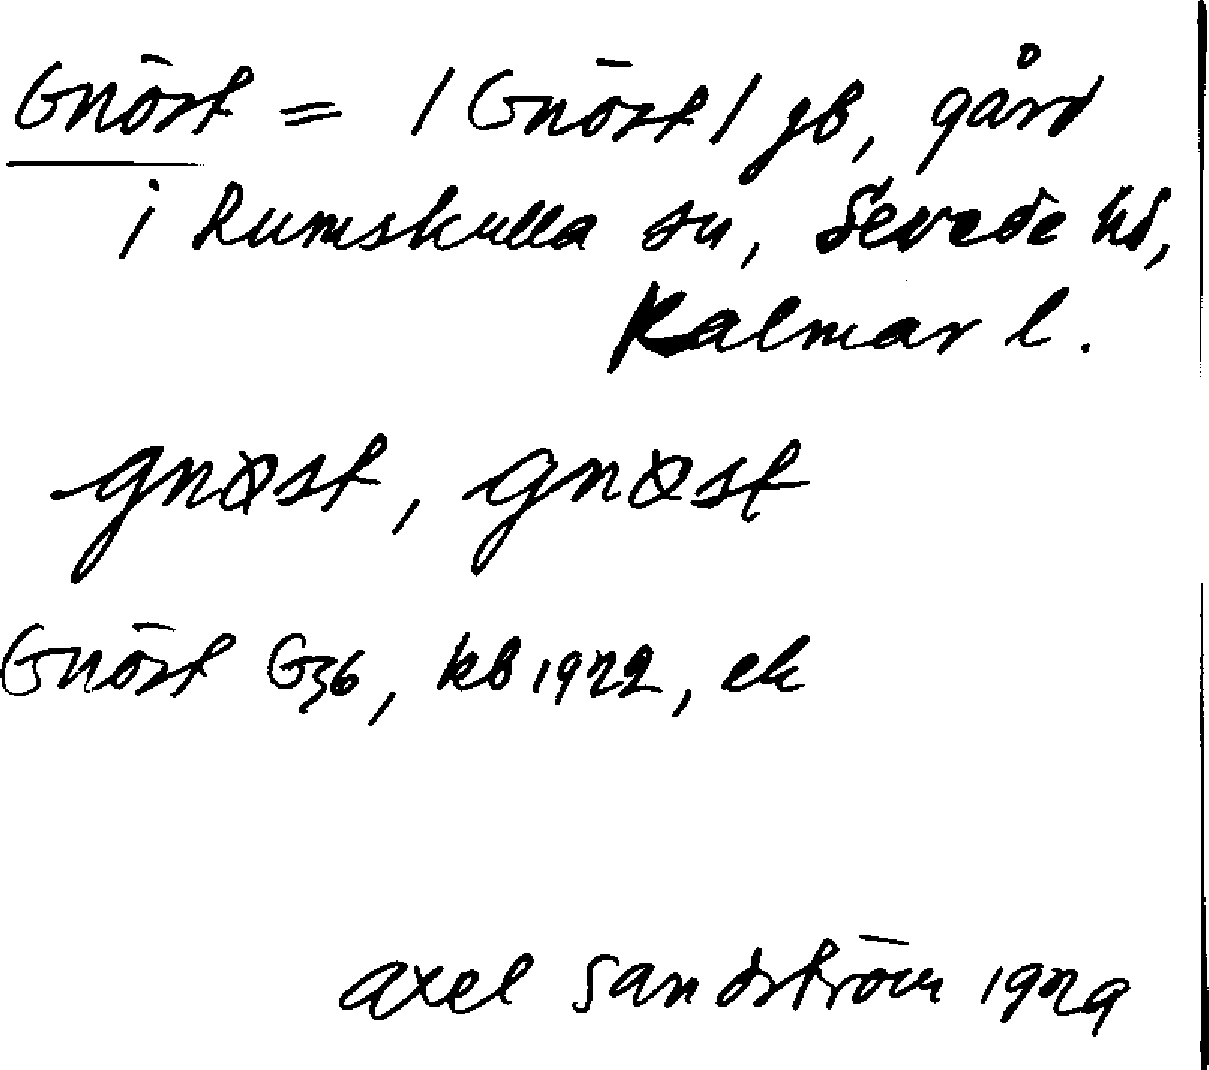 Gnöst = / Gnöst / gb, gård
i Rumskulla sn, Sevede hd,
Kalmar l.
gnøst, gnøst
Gnöst G36, kb 1922, ek
Axel Sandström 1929